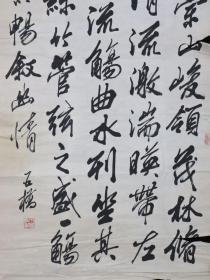 崇山峻領茂林脩
清流激湍暎帶左
流觴曲水列坐其
絲竹管弦之盛一觴
暢叙幽情